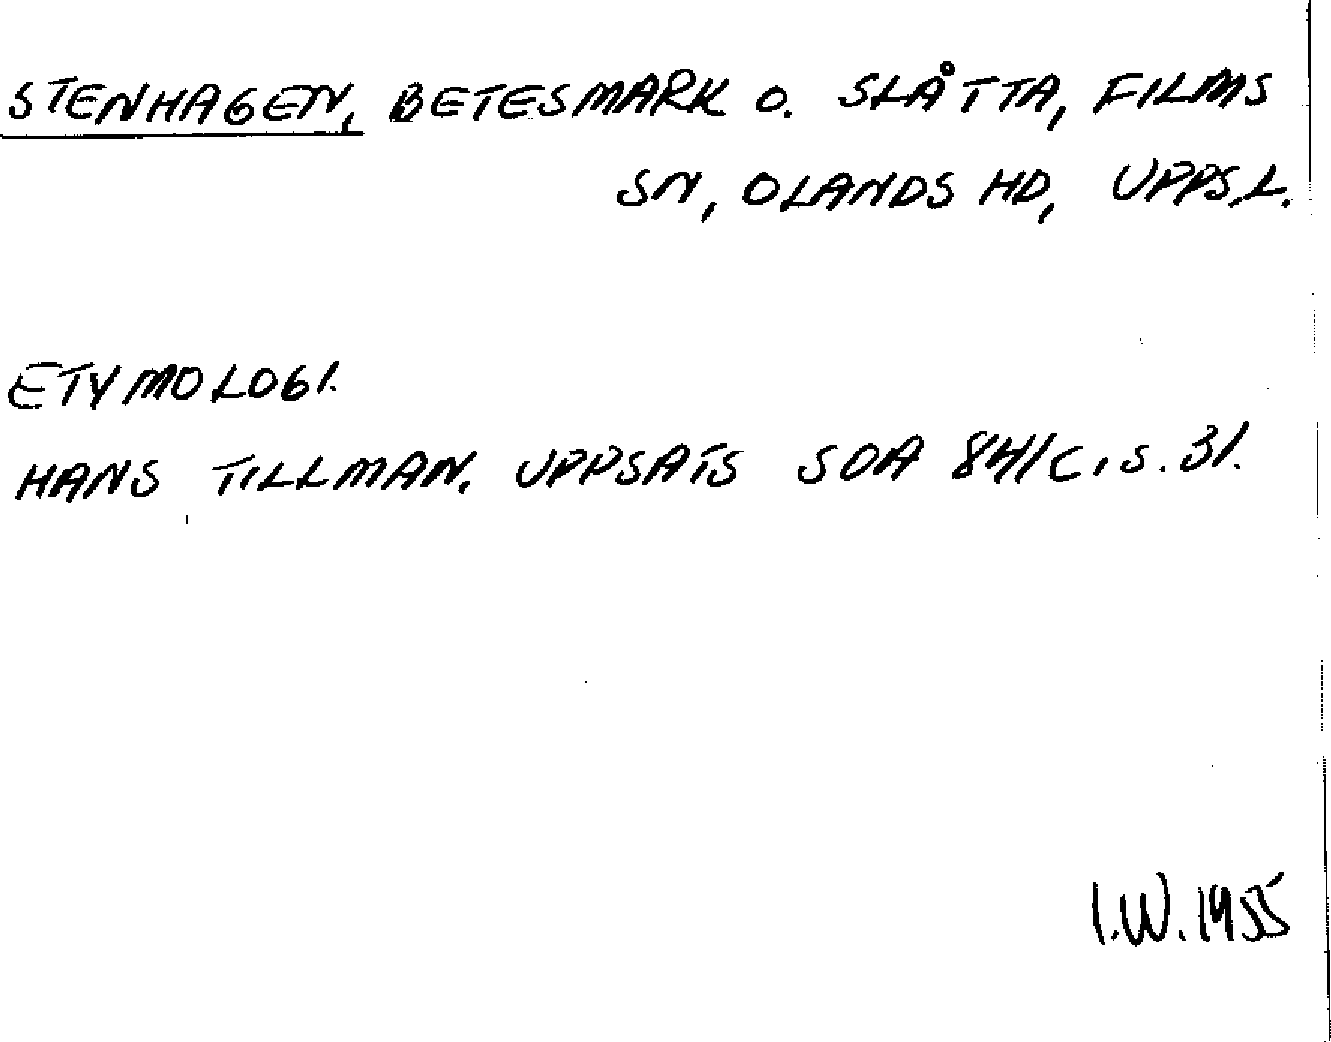 STENHAGEN, BETESMARK O. SLÅTTA, FILMS
SN, OLANDS HD, UPPS L.
ETYMOLOGI.
HANS TILLMAN. UPPSATS SOA 841C, S. 31.
I.W. 1955